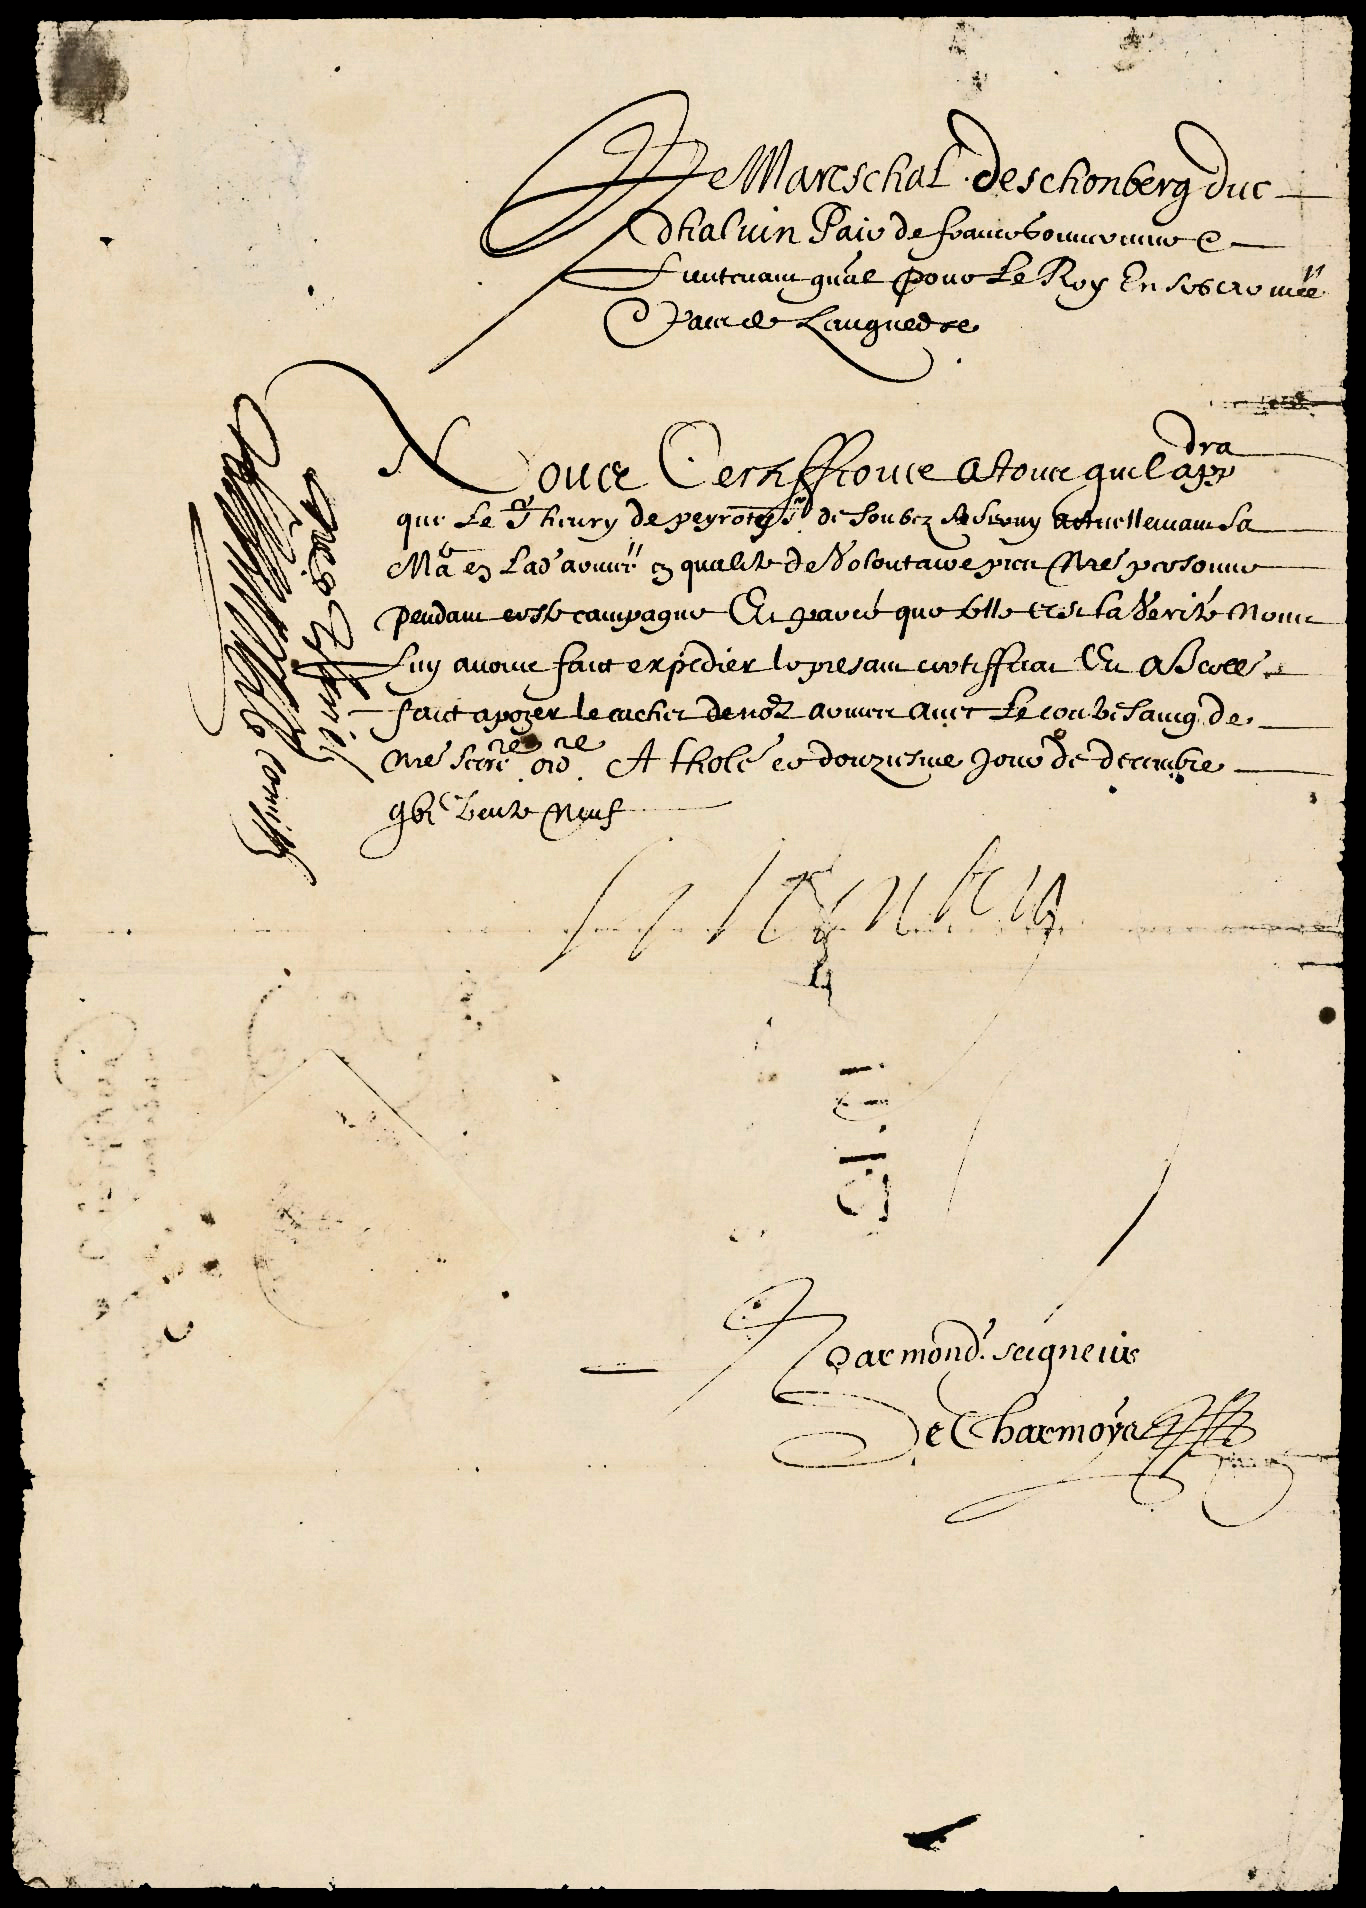 Le Mareschal de schonberg duc
dhaluin Pair de france Gouverneur &
Lieutenant gnâl pour Le Roy En ses armées
& païs de Languedoc
Nous Certiffions A tous quil appdra
que Le Sr henry de peyrotes sr de Soubez A Servy actuellemant Sa
Maté en Lad' armée en qualité de Volontaire prez Nre personne
pendant ceste campagne Et parce que telle est la Verité Nous
Luy avons faict expedier le presant certifficat Et a Icelle
faict apozer le cachet de noz armes avec Le contreseing de
Nre Secrére ordre. A thole ce douziesme Jour de decembre
gbic trente Neuf
Schonberg
Par mond'. seigneur
De Charmoys